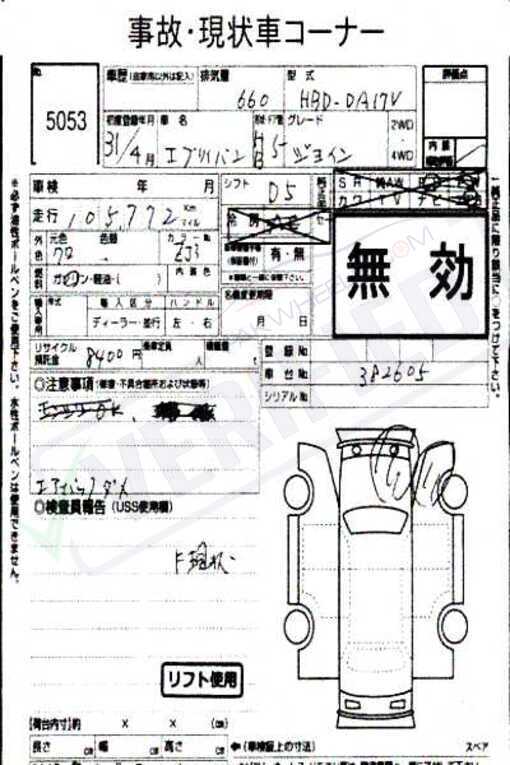 事故・現状車コーナー
No.
5053
車歴 (自家用以外は記入)
排気量
660
型式
HBD-DA17V
評価点
初度登録年月
31/4月
車名
エブリイバン
ドア形状
5
グレード
ジョイン
2WD
・
4WD
内装
車検 年 月
シフト
D5
走行 105,772 Km マイル
冷房
AC
SR 純AW
カワ TV ナビ
外色
元色
クロ
色替
カラーNo.
ZJ3
燃料
ガソリン・軽油・( )
内装色
有・無
無効
輸入車用
年式
輸入区分
ハンドル
ディーラー・並行
左・右
名義変更期限
月 日
リサイクル預託金
8400円
乗車定員
人
積載量
t
登録No.
車台No.
382605
シリアルNo.
◎注意事項 (修復・不具合箇所および状態等)
エンジンOK、
エアバックダメ
◎検査員報告 (USS使用欄)
リフト使用
【荷台内寸】約 × × (cm)
長さ cm 幅 cm 高さ cm
←(車検証上の寸法)
スペア
※必ず油性ボールペンをご使用下さい。水性ボールペンは使用できません。
純正品に限り該当に○をつけて下さい。
VERIFIED